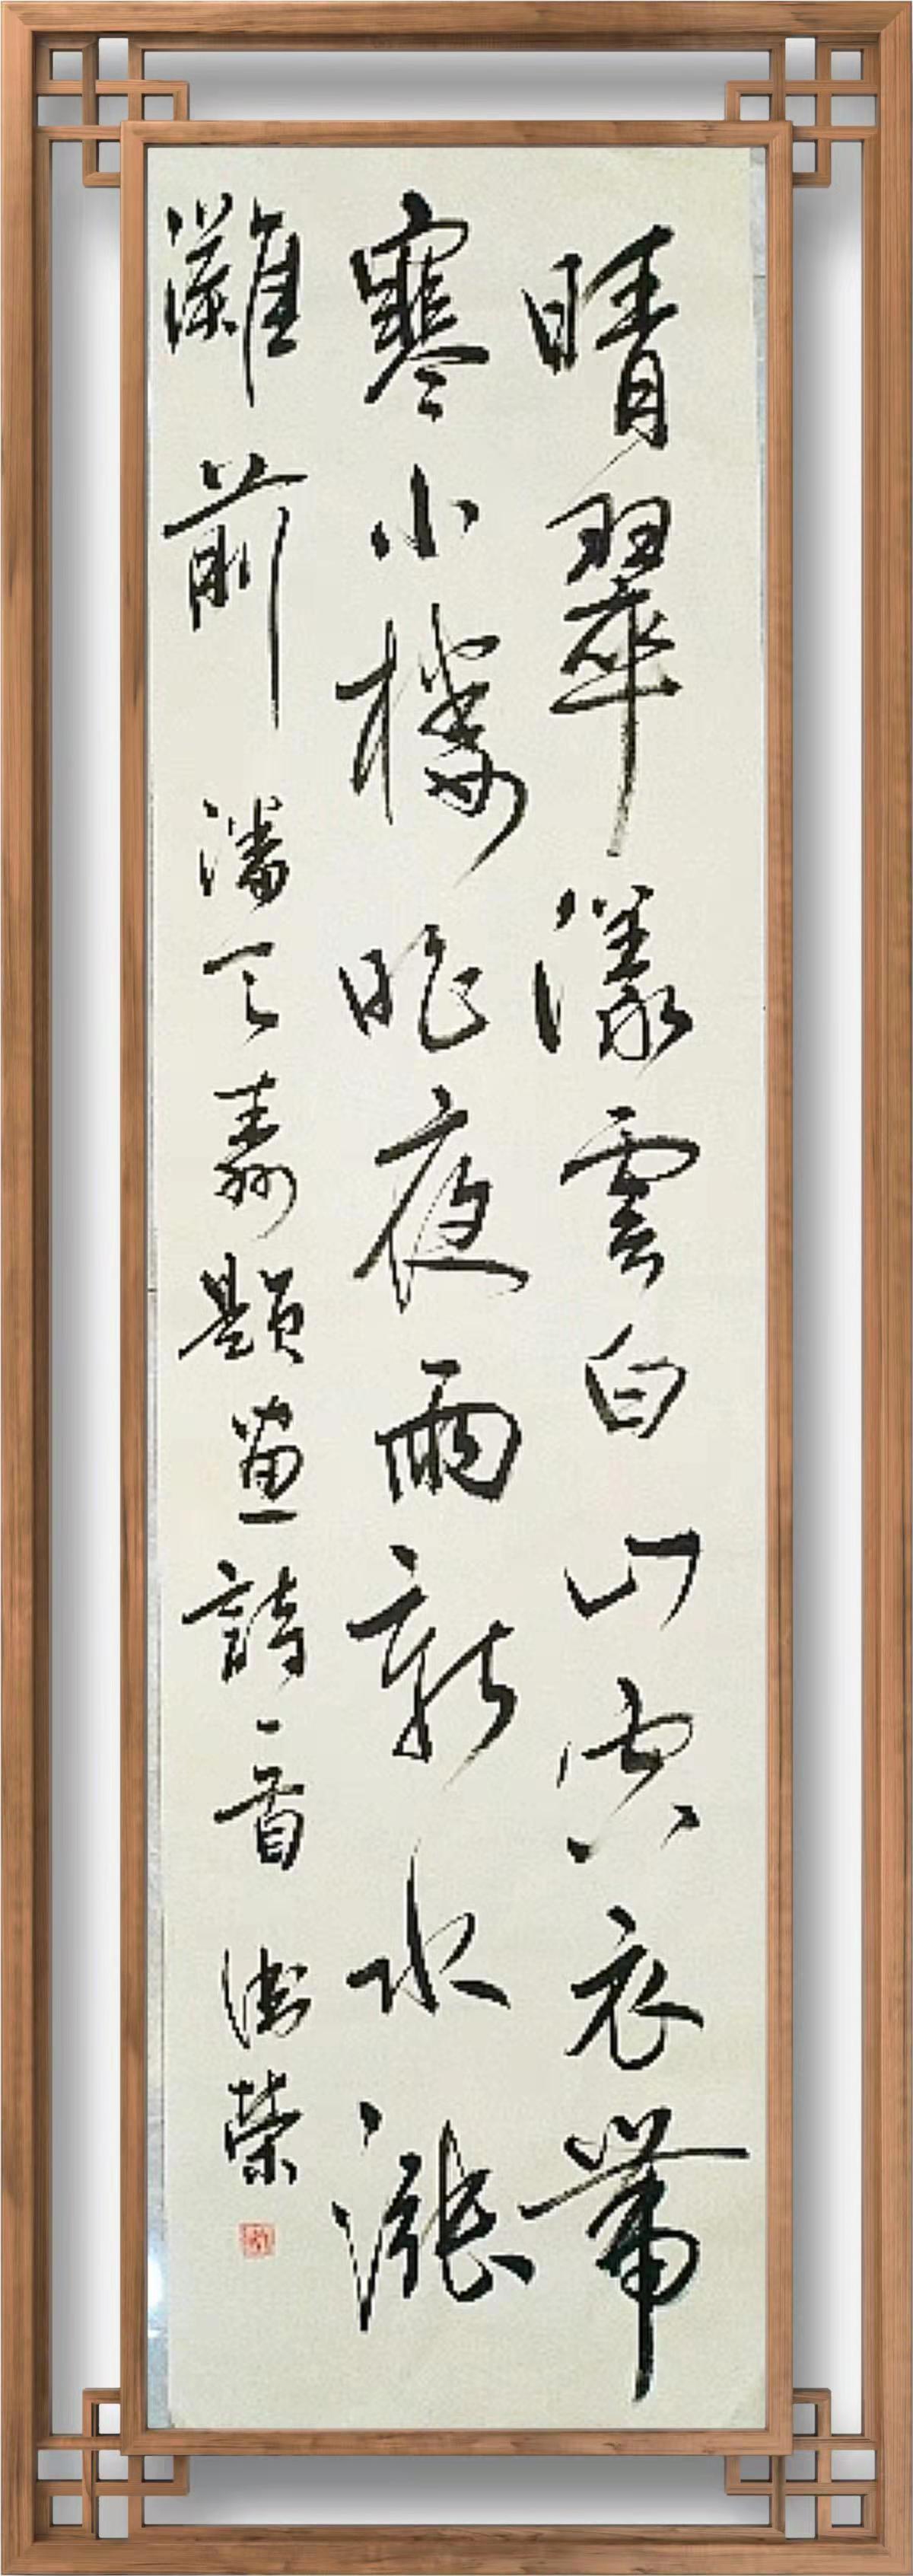 晴翠漾雲白山容衣帶
寒小樓昨夜雨新水漲
灘前 潘天壽題畫詩一首 榮